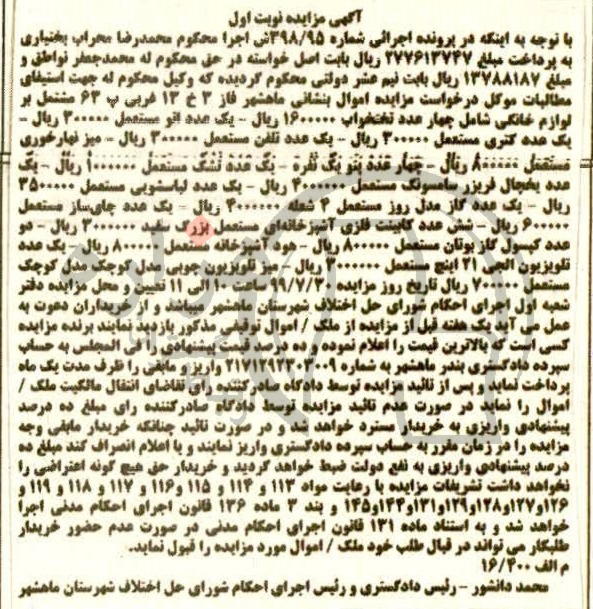 آگهی مزایده نوبت اول
با توجه به اینکه در پرونده اجرائی شماره ۳۹۸/۹۵ش اجرا محکوم محمدرضا محراب بختیاری
به پرداخت مبلغ ۲۷۷۶۱۳۷۴۷ ریال بابت اصل خواسته در حق محکوم له محمدجعفر نواطق و
مبلغ ۱۳۷۸۸۱۸۷ ریال بابت نیم عشر دولتی محکوم گردیده که وکیل محکوم له جهت استیفای
مطالبات موکل درخواست مزایده اموال بنشانی ماهشهر فاز ۳ خ ۱۳ غربی پ ۶۳ مشتمل بر
لوازم خانگی شامل چهار عدد تختخواب ۱۶۰۰۰۰۰ ریال – یک عدد اتو مستعمل ۳۰۰۰۰۰ ریال –
یک عدد کتری مستعمل ۳۰۰۰۰۰ ریال – یک عدد تلفن مستعمل ۳۰۰۰۰۰ ریال – میز نهارخوری
مستعمل ۸۰۰۰۰۰ ریال – چهار عدد پتو یک نفره – یک عدد تشک مستعمل ۱۰۰۰۰۰۰ ریال – یک
عدد یخچال فریزر سامسونگ مستعمل ۴۰۰۰۰۰۰ ریال – یک عدد لباسشویی مستعمل ۳۵۰۰۰۰۰
ریال – یک عدد گاز مدل روز مستعمل ۴ شعله ۴۰۰۰۰۰۰ ریال – یک عدد چای‌ساز مستعمل
۶۰۰۰۰۰ ریال – شش عدد کابینت فلزی آشپزخانه‌ای مستعمل بزرگ سفید ۳۰۰۰۰۰۰ ریال – دو
عدد کپسول گاز بوتان مستعمل ۸۰۰۰۰۰ ریال – هود آشپزخانه مستعمل ۸۰۰۰۰۰ ریال – یک عدد
تلویزیون الجی ۲۱ اینچ مستعمل ۳۰۰۰۰۰۰ ریال – میز تلویزیون چوبی مدل کوچک مدل کوچک
مستعمل ۷۰۰۰۰۰ ریال تاریخ روز مزایده ۹۹/۷/۳۰ ساعت ۱۰ الی ۱۱ تعیین و محل مزایده دفتر
شعبه اول اجرای احکام شورای حل اختلاف شهرستان ماهشهر میباشد و از خریداران دعوت به
عمل می آید یک هفته قبل از مزایده از ملک / اموال توقیفی مذکور بازدید نمایند برنده مزایده
کسی است که بالاترین قیمت را اعلام نموده و ده درصد قیمت پیشنهادی را فی المجلس به حساب
سپرده دادگستری بندر ماهشهر به شماره ۲۱۷۱۲۹۲۳۰۳۰۰۹ واریز و مابقی را ظرف مدت یک ماه
پرداخت نماید و پس از تائید مزایده توسط دادگاه صادرکننده رای تقاضای انتقال مالکیت ملک /
اموال را نماید در صورت عدم تائید مزایده توسط دادگاه صادرکننده رای مبلغ ده درصد
پیشنهادی واریزی به خریدار مسترد خواهد شد و در صورت تائید چنانکه خریدار مابقی وجه
مزایده را در زمان مقرر به حساب سپرده دادگستری واریز نمایند و یا اعلام انصراف کند مبلغ ده
درصد پیشنهادی واریزی به نفع دولت ضبط خواهد گردید و خریدار حق هیچ گونه اعتراضی را
نخواهد داشت تشریفات مزایده با رعایت مواد ۱۱۳ و ۱۱۴ و ۱۱۵ و۱۱۶ و ۱۱۷ و ۱۱۸ و ۱۱۹ و
۱۲۶و۱۲۷و۱۲۸و۱۲۹و۱۳۱و۱۴۴و۱۴۵ و بند ۳ ماده ۱۳۶ قانون اجرای احکام مدنی اجرا
خواهد شد و به استناد ماده ۱۳۱ قانون اجرای احکام مدنی در صورت عدم حضور خریدار
طلبکار می تواند در قبال طلب خود ملک / اموال مورد مزایده را قبول نماید.
م الف ۱۶/۴۰۰
محمد دانشور – رئیس دادگستری و رئیس اجرای احکام شورای حل اختلاف شهرستان ماهشهر